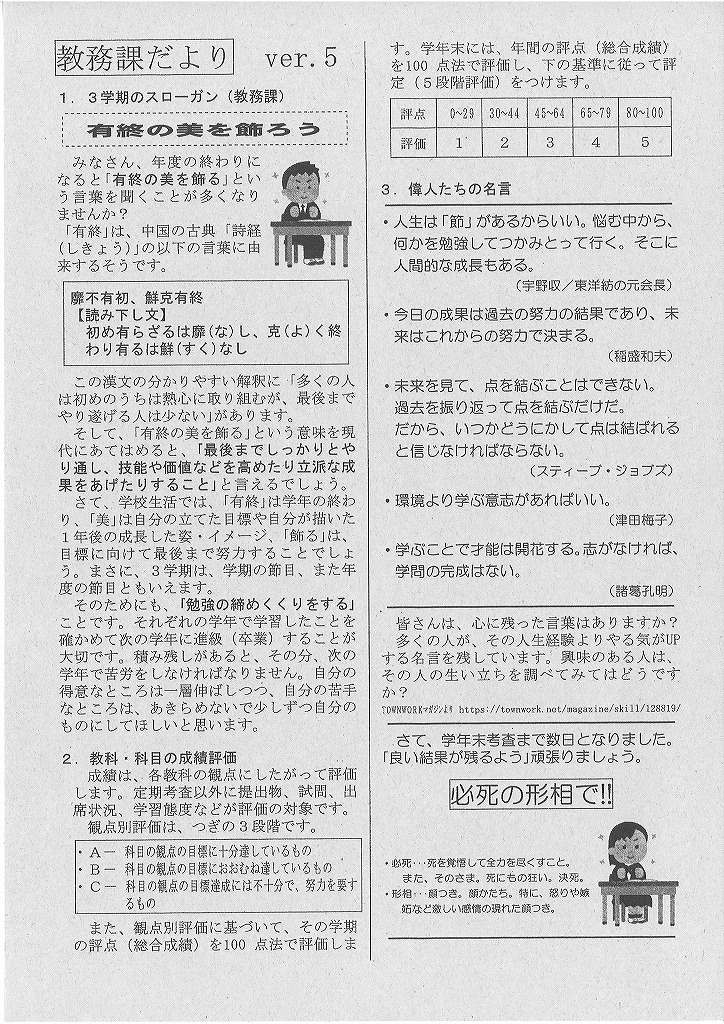 教務課だより ver.5
1．3学期のスローガン（教務課）
有終の美を飾ろう
みなさん、年度の終わりに
なると「有終の美を飾る」とい
う言葉を聞くことが多くなり
ませんか？
「有終」は、中国の古典「詩経
(しきょう)」の以下の言葉に由
来するそうです。
靡不有初、鮮克有終
【読み下し文】
初め有らざるは靡(な)し、克(よ)く終
わり有るは鮮(すく)なし
この漢文の分かりやすい解釈に「多くの人
は初めのうちは熱心に取り組むが、最後まで
やり遂げる人は少ない」があります。
そして、「有終の美を飾る」という意味を現
代にあてはめると、「最後までしっかりとや
り通し、技能や価値などを高めたり立派な成
果をあげたりすること」と言えるでしょう。
さて、学校生活では、「有終」は学年の終わ
り、「美」は自分の立てた目標や自分が描いた
１年後の成長した姿・イメージ、「飾る」は、
目標に向けて最後まで努力することでしょ
う。まさに、３学期は、学期の節目、また年
度の節目ともいえます。
そのためにも、「勉強の締めくくりをする」
ことです。それぞれの学年で学習したことを
確かめて次の学年に進級（卒業）することが
大切です。積み残しがあると、その分、次の
学年で苦労をしなければなりません。自分の
得意なところは一層伸ばしつつ、自分の苦手
なところは、あきらめないで少しずつ自分の
ものにしてほしいと思います。
2．教科・科目の成績評価
成績は、各教科の観点にしたがって評価
します。定期考査以外に提出物、試問、出
席状況、学習態度などが評価の対象です。
観点別評価は、つぎの３段階です。
・A－ 科目の観点の目標に十分達しているもの
・B－ 科目の観点の目標におおむね達しているもの
・C－ 科目の観点の目標達成には不十分で、努力を要す
るもの
また、観点別評価に基づいて、その学期
の評点（総合成績）を100 点法で評価しま
す。学年末には、年間の評点（総合成績）
を100 点法で評価し、下の基準に従って評
定（５段階評価）をつけます。
評点 0~29 30~44 45~64 65~79 80~100
評価 1 2 3 4 5
3．偉人たちの名言
・人生は「節」があるからいい。悩む中から、
何かを勉強してつかみとって行く。そこに
人間的な成長もある。
（宇野収／東洋紡の元会長）
・今日の成果は過去の努力の結果であり、未
来はこれからの努力で決まる。
（稲盛和夫）
・未来を見て、点を結ぶことはできない。
過去を振り返って点を結ぶだけだ。
だから、いつかどうにかして点は結ばれる
と信じなければならない。
（スティーブ・ジョブズ）
・環境より学ぶ意志があればいい。
（津田梅子）
・学ぶことで才能は開花する。志がなければ、
学問の完成はない。
（諸葛孔明）
皆さんは、心に残った言葉はありますか？
多くの人が、その人生経験よりやる気がUP
する名言を残しています。興味のある人は、
その人の生い立ちを調べてみてはどうです
か？
TOWNWORKマガジンより https://townwork.net/magazine/skill/128819/
さて、学年末考査まで数日となりました。
「良い結果が残るよう」頑張りましょう。
必死の形相で!!
・必死･･･死を覚悟して全力を尽くすこと。
また、そのさま。死にもの狂い。決死。
・形相･･･顔つき。顔かたち。特に、怒りや嫉
妬など激しい感情の現れた顔つき。